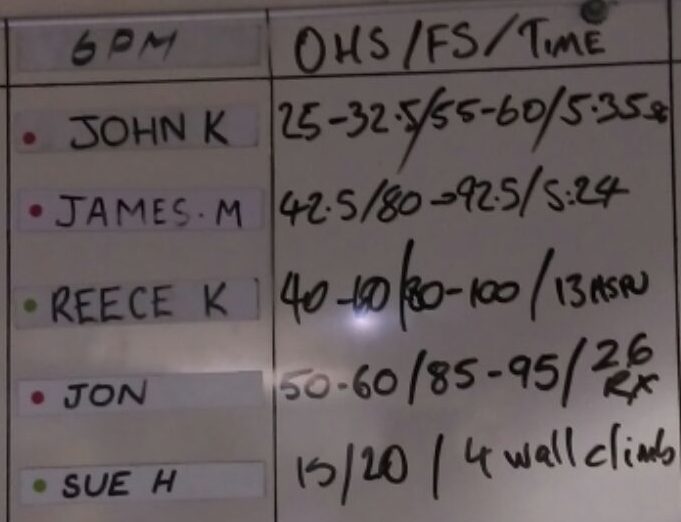 6PM OHS/FS/TIME
JOHN K 25-32.5/55-60/5.35
JAMES.M 42.5/80→92.5/5:24
REECE K 40-60/80-100/13 HSPU
JON 50-60/85-95/26
RX
SUE H 15/20/4 wall climb